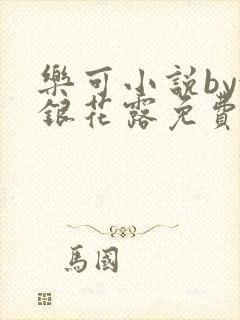 樂可小説by
銀花露免費
馬國